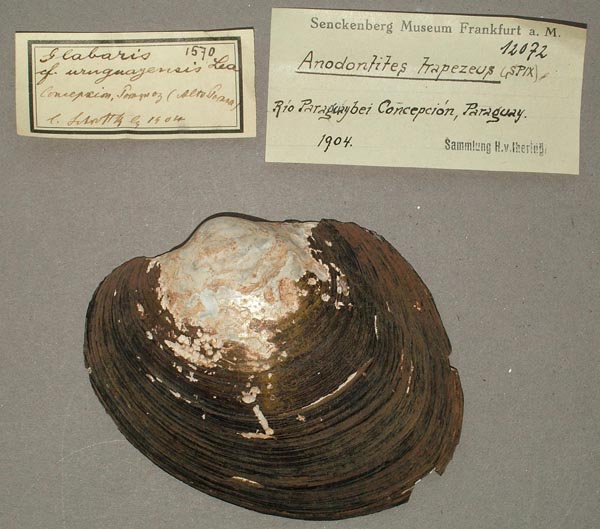 Glabaris 1570
cf. uruguayensis Lea
Concepcion, (Alto Parana)
1904
Senckenberg Museum Frankfurt a. M.
12072
Anodontites trapezeus (SPIX).
Río Paraguay bei Concepción, Paraguay.
1904.
Sammlung H. v. Ihering